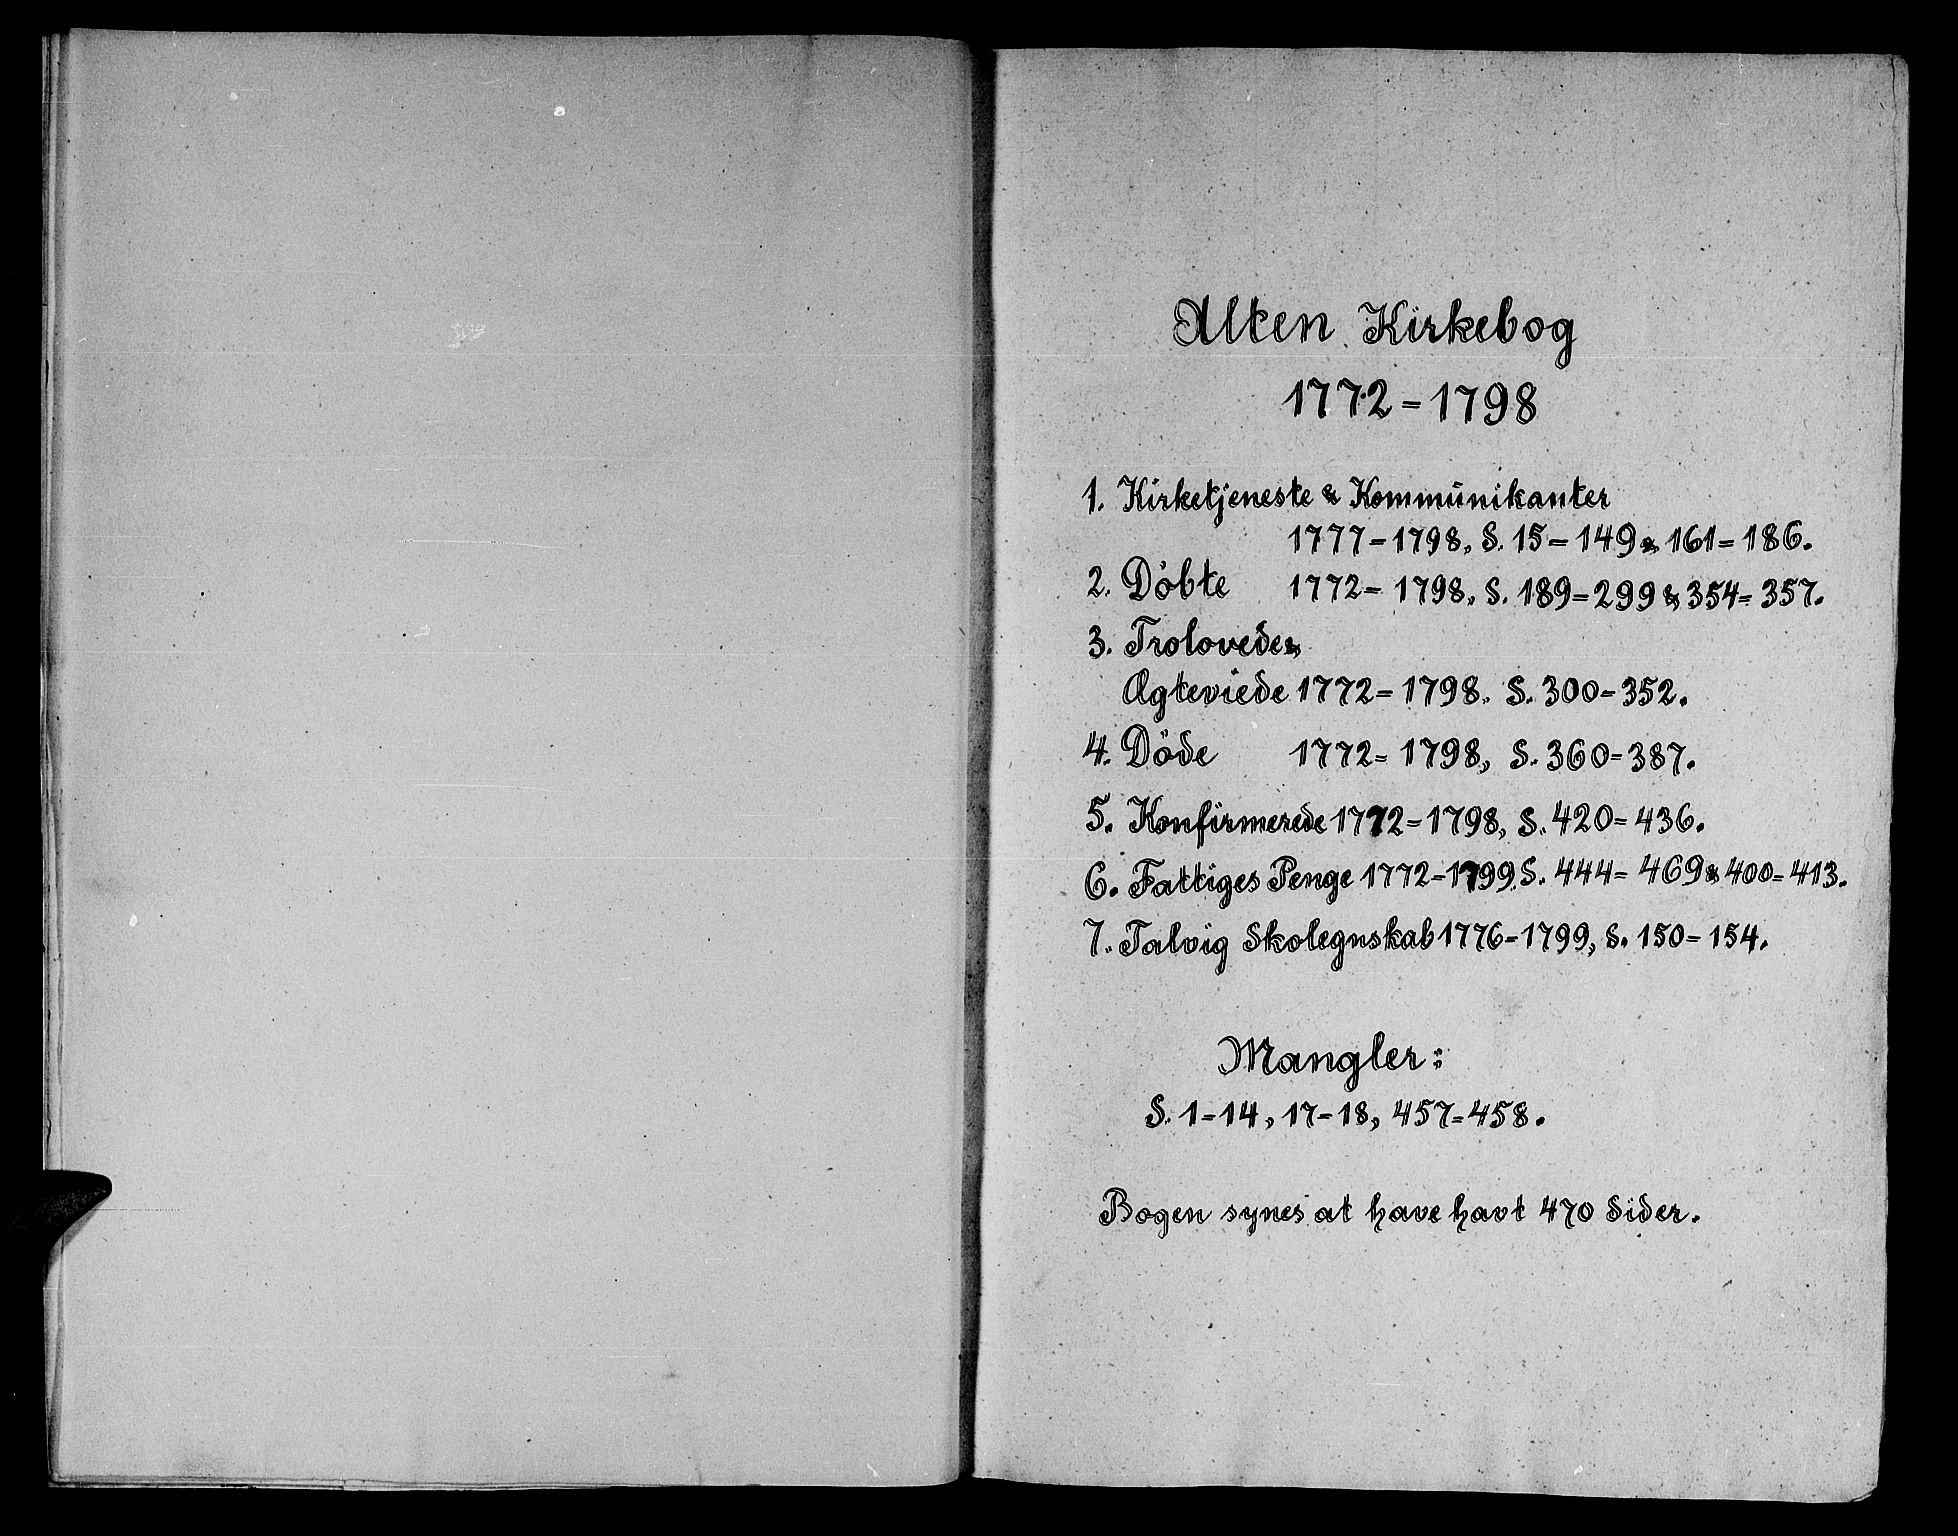 Alten Kirkebog
1772-1798
1. Kirketjeneste & Kommunikanter
1777-1798, S. 15-149 & 161-186.
2. Döbte 1772-1798, S. 189-299 & 354-357.
3. Trolovede &
Ægteviede 1772-1798. S. 300-352.
4. Döde 1772-1798, S. 360-387.
5. Konfirmerede 1772-1798, S. 420-436.
6. Fattiges Penge 1772-1799. S. 444-469 & 400-413.
7. Talvig Skolegnskab 1776-1799, S. 150-154.
Mangler:
S. 1-14, 17-18, 457-458.
Bogen synes at have havt 470 Sider.